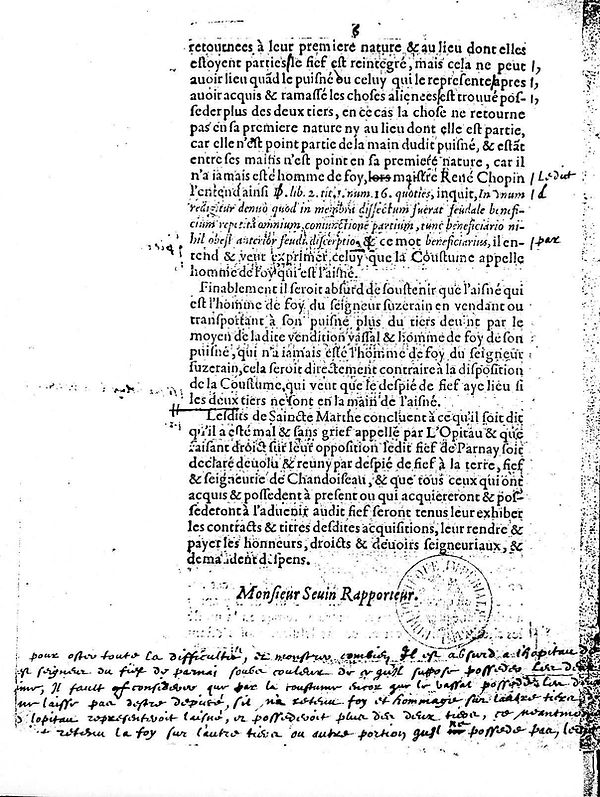 8
retournees à leur premiere nature & au lieu dont elles
estoyent parties le fief est reintegré, mais cela ne peut
auoir lieu quãd le puisné ou celuy qui le represente apres
auoir acquis & ramassé les choses alienees est trouué pos-
seder plus des deux tiers, en ce cas la chose ne retourne
pas en sa premiere nature ny au lieu dont elle est partie,
car elle n'est point partie de la main dudit puisné, & estãt
entre ses mains n'est point en sa premiere nature, car il
n'a iamais esté homme de foy, lors maistre René Chopin
l'entend ainsi lib. 2. tit. 1. num. 16. quoties, inquit, In vnum
redigitur denuò quod in membra dissectum fuerat feudale benefi-
cium repetita omnium coniunctione partium, tunc beneficiario ni-
hil obest anterior feudi discerptio, & ce mot beneficiarius, il en-
tend & veut exprimer celuy que la Coustume appelle
homme de foy qui est l'aisné.
Finablement il seroit absurd de soustenir que l'aisné qui
est l'homme de foy du seigneur suzerain en vendant ou
transportant à son puisné plus du tiers deuint par le
moyen de ladite vendition vassal & homme de foy de son
puisné, qui n'a iamais esté l'homme de foy du seigneur
suzerain, cela seroit directement contraire à la disposition
de la Coustume, qui veut que le despié de fief aye lieu si
les deux tiers ne sont en la main de l'aisné.
Lesdits de Saincte Marthe concluent à ce qu'il soit dit
qu'il a esté mal & sans grief appellé par L'Opitau & que
faisant droict sur leur opposition ledit fief de Parnay soit
declaré deuolu & reuny par despié de fief à la terre, fief
& seigneurie de Chandoiseau, & que tous ceux qui ont
acquis & possedent à present ou qui acquiereront & pos-
sederont à l'aduenir audit fief seront tenus leur exhiber
les contracts & titres desdites acquisitions, leur rendre &
payer les honneurs, droicts & deuoirs seigneuriaux, &
demandent despens.
Monsieur Seuin Rapporteur.
pour oster toute la difficulté, et monstrer combien Il est absurd a lhopitau
seigneur du fief de parnai soubz couleur de ce quil suppose posseder
Il fault considerer que par la coustume encor que le vassal possede
ne laisse pas destre depuié, sil na retenu foy et hommage sur lautre tiers
lopitau representeroit laisné, et possederoit plus des deux tiers, ce neantmo
retenu la foy sur lautre tiers ou autre portion quil ne possede pas,